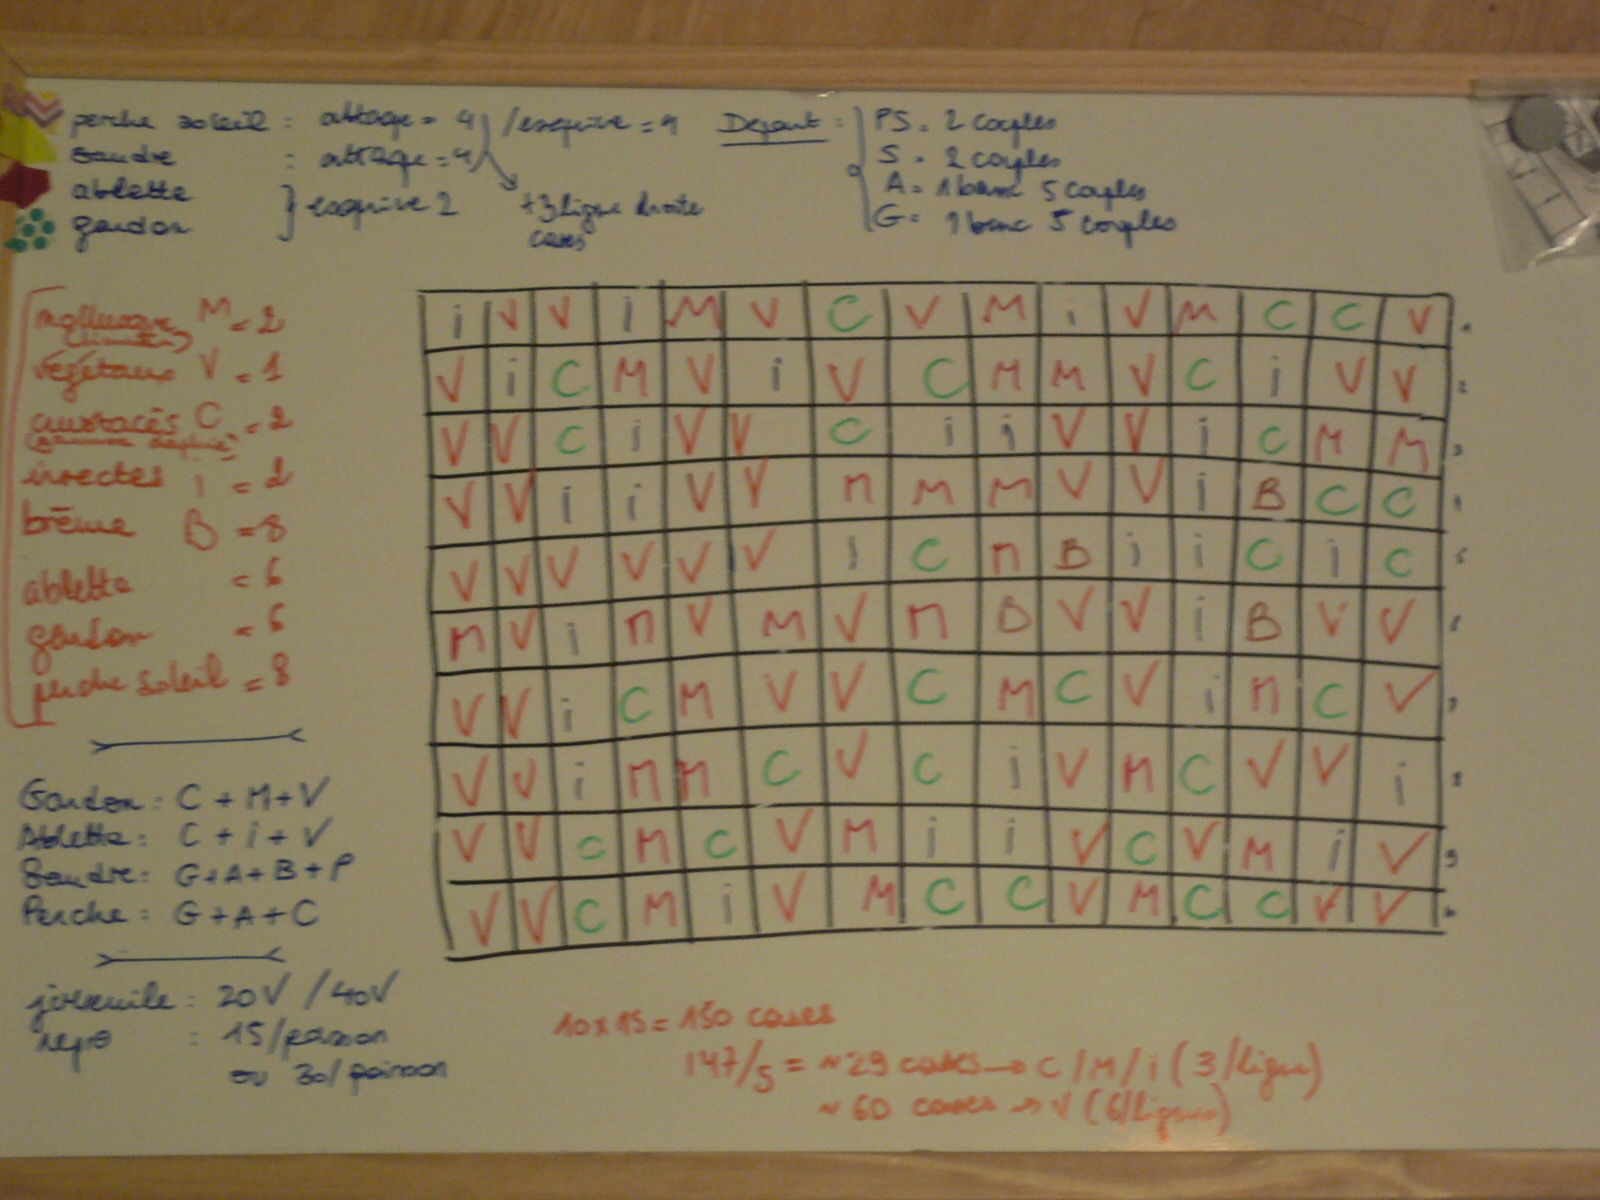 perche soleil : attaque = 4 / esquive = 4
sandre : attaque = 4
ablette
gardon } esquive 2
+3 ligne droite
cases
Départ :
PS = 2 couples
S = 2 couples
A = 1 banc 5 couples
G = 1 banc 5 couples
mollusque M = 2
(limnées)
végétaux V = 1
crustacés C = 2
insectes i = 2
brème B = 8
ablette = 6
gardon = 6
perche soleil = 8
Gardon : C + M + V
Ablette : C + i + V
Sandre : G + A + B + P
Perche : G + A + C
juvénile : 20V / 40V
repro : 15/poisson
ou 30/poisson
i V V i M V C V M i V M C C V 1
V i C M V i V C M M V C i V V 2
V V C i V V C i i V V i C M M 3
V V i i V V M M M V V i B C C 4
V V V V V V i C M B i i C i C 5
M V i M V M V M B V V i B V V 6
V V i C M V V C M C V i M C V 7
V V i M M C V C i V M C V V i 8
V V C M C V M i i V C V M i V 9
V V C M i V M C C V M C C V V
10 x 15 = 150 cases
147/5 = ~29 cases → C / M / i (3/ligne)
~ 60 cases → V (6/lignes)